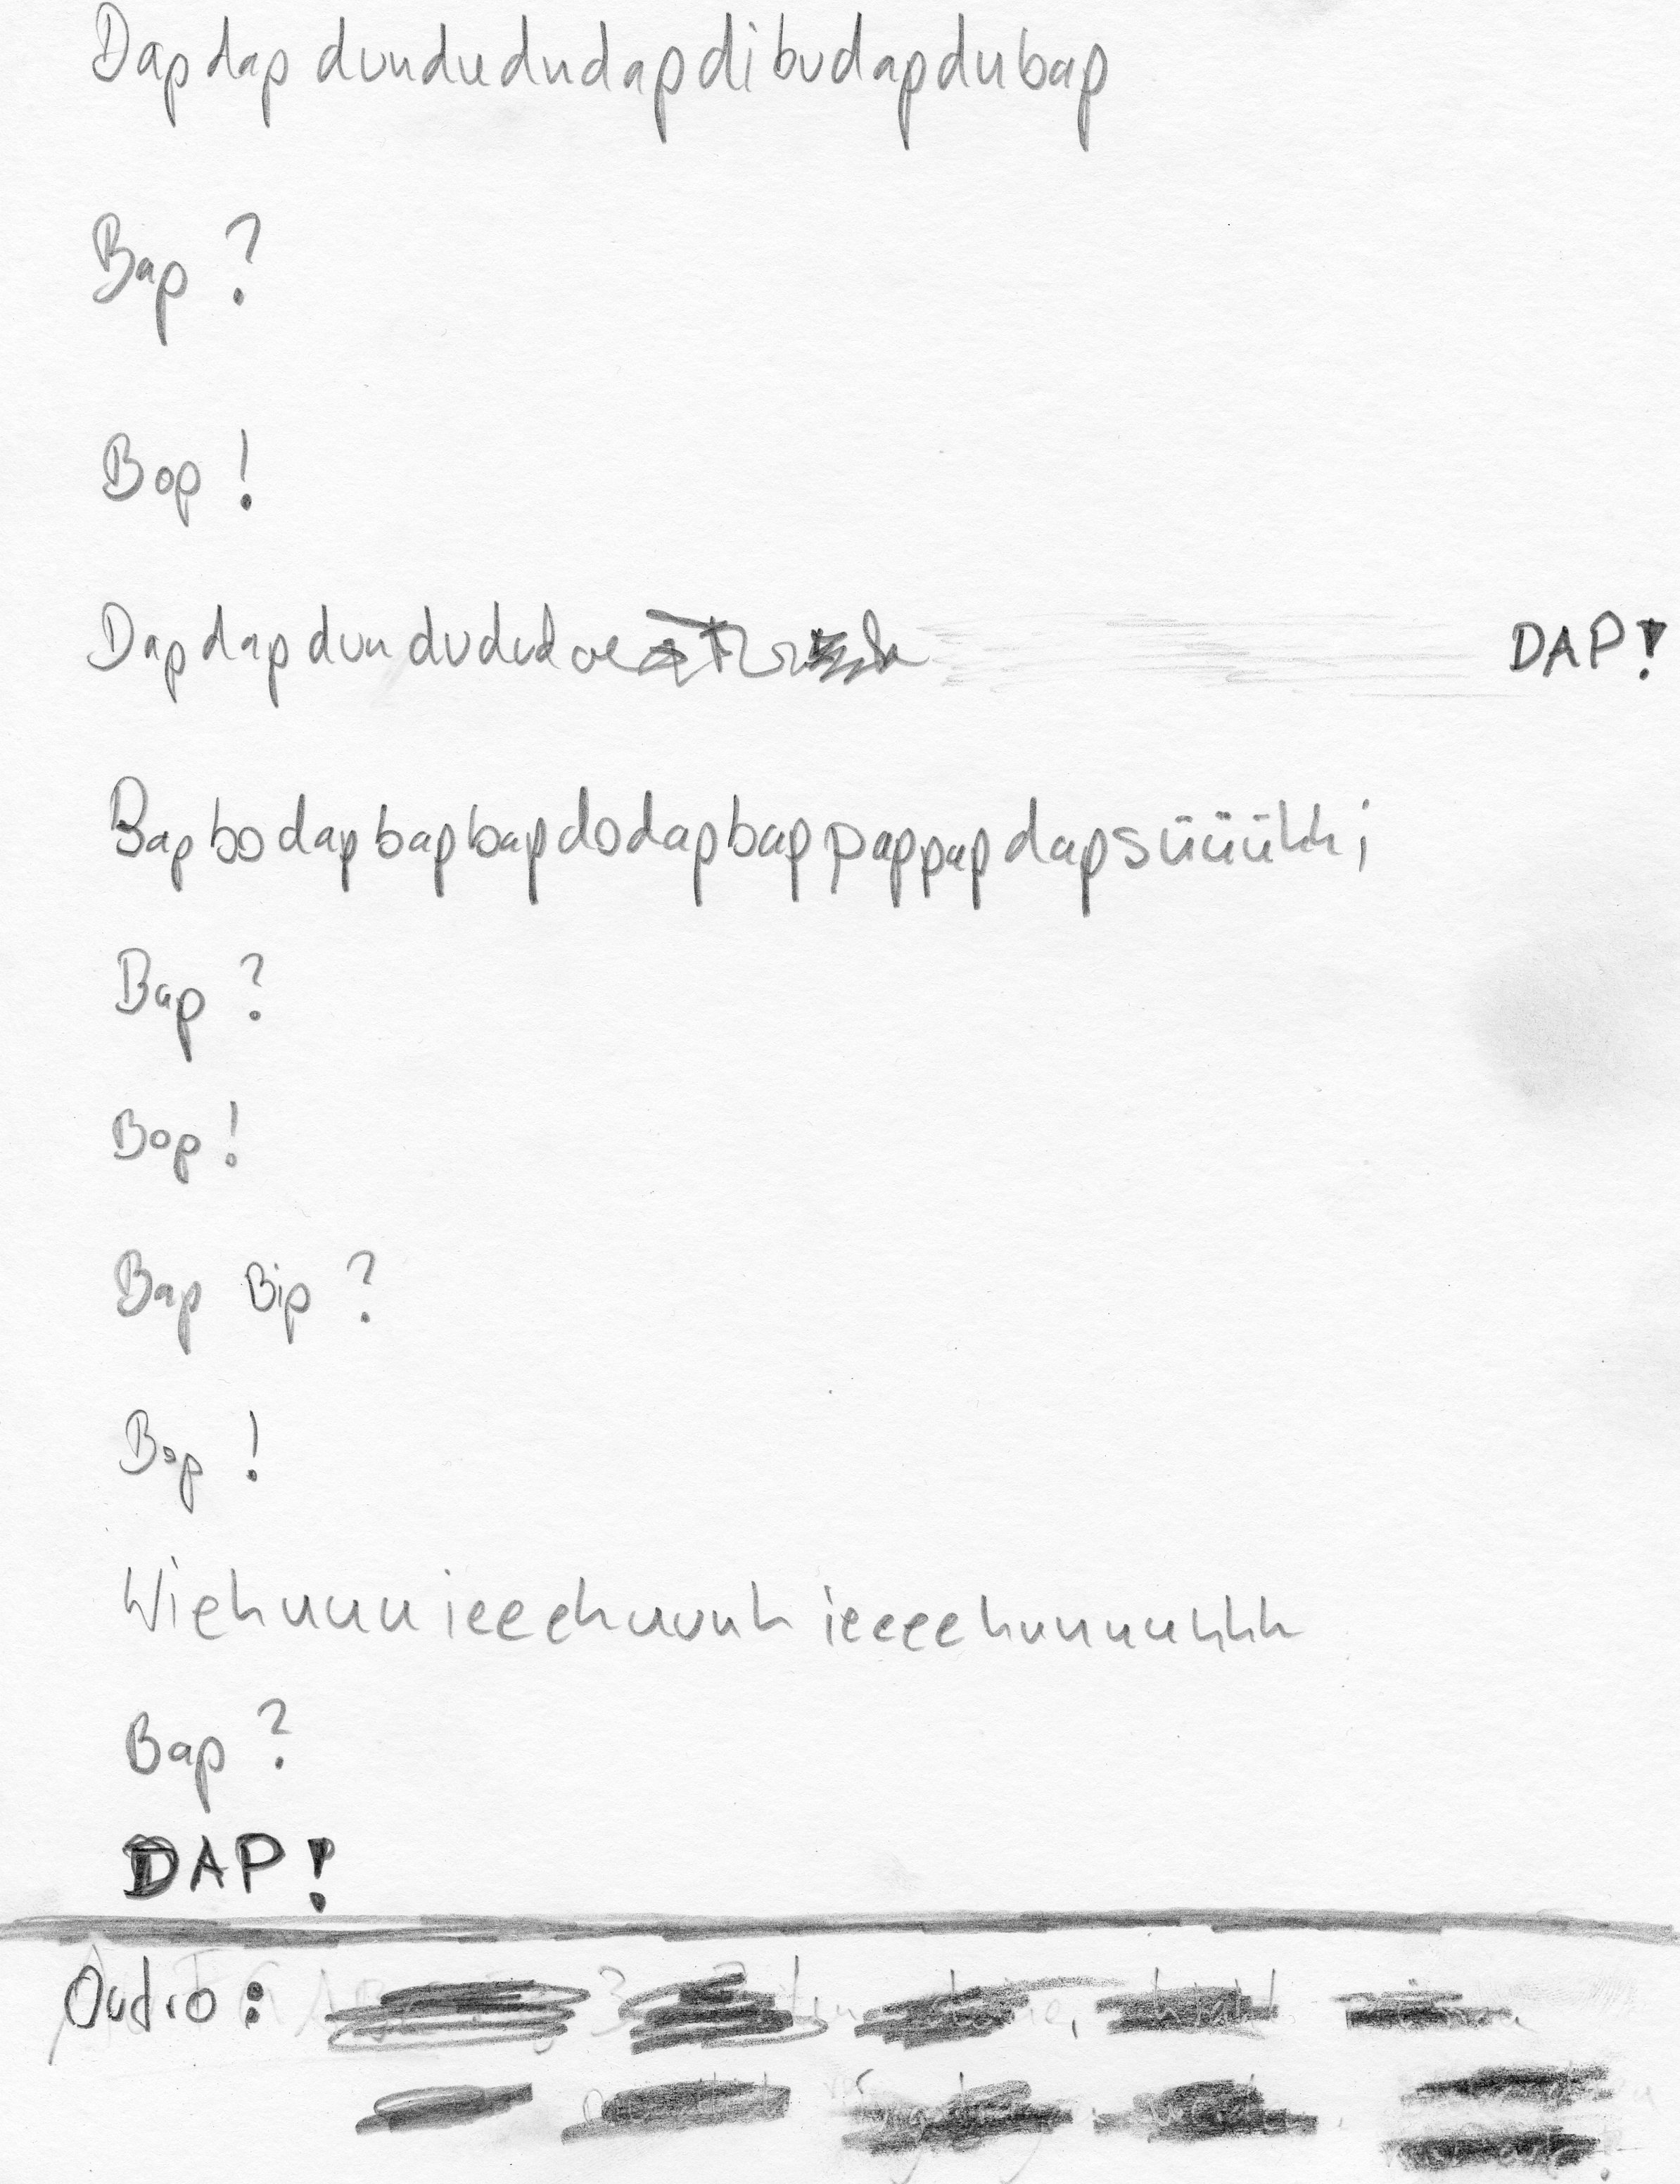 Dapdap dundududapdibudapdubap
Bap ?
Bop !
Dapdapdun dududdoe DAP!
Bapbodapbapbapdodapbappappapdapsüüühhi
Bap ?
Bop !
Bap Bip ?
Bop !
Wiehuuuieeehuuuh ieeeehuuuuuhhh
Bap ?
DAP !
Oudio :